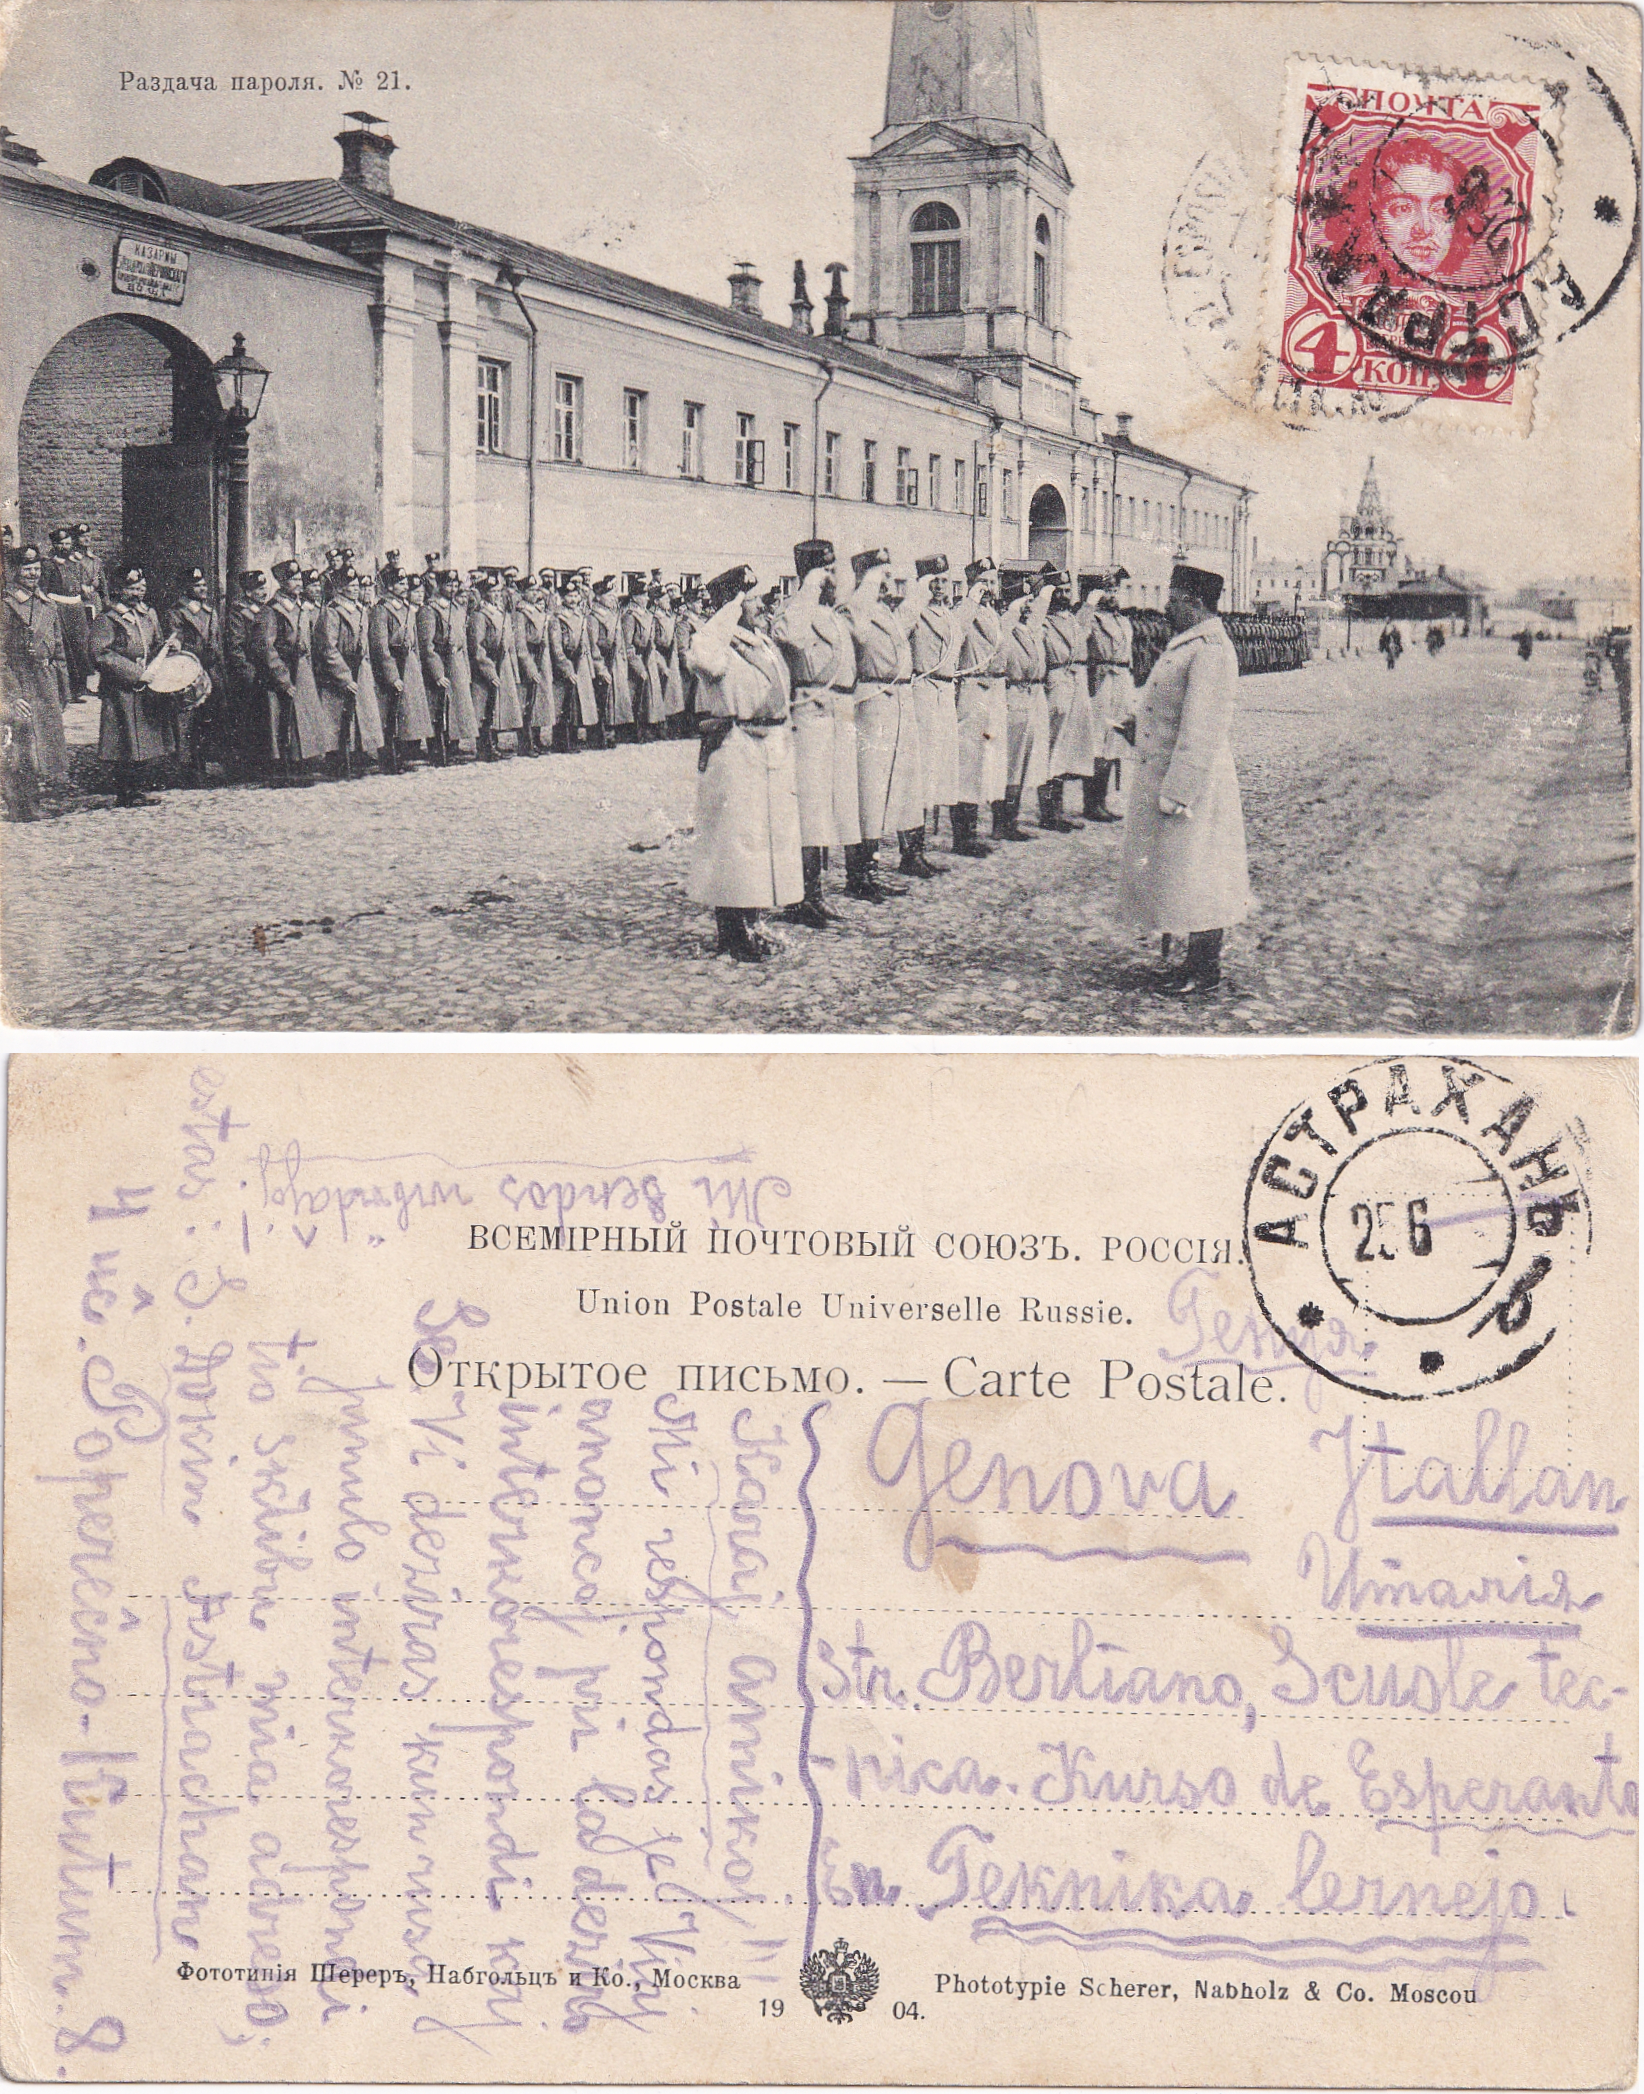 Раздача пароля. № 21.
КАЗАРМЫ
ПОЧТА
4 КОП. 4
АСТРАХАНЬ
25 6
Mi sendos
ВСЕМІРНЫЙ ПОЧТОВЫЙ СОЮЗЪ. РОССІЯ.
Union Postale Universelle Russie.
Открытое письмо. — Carte Postale.
Генуя
Genova Itallan
Италія
str. Berliano, Scuole tec-
-nica. Kurso de Esperanto
En Teknika lernejo.
Karaj amikoj!!!
Mi respondas je Viaj
anoncoj pri la deziro
interkorespondi kaj
Se Vi deziras kun mi
interkorespondi
tio skribu mia adreso,
estas: S. Astrachan
4 uĉ. 8.
Фототипія Шереръ, Набгольцъ и Ко., Москва
1904.
Phototypie Scherer, Nabholz & Co. Moscou